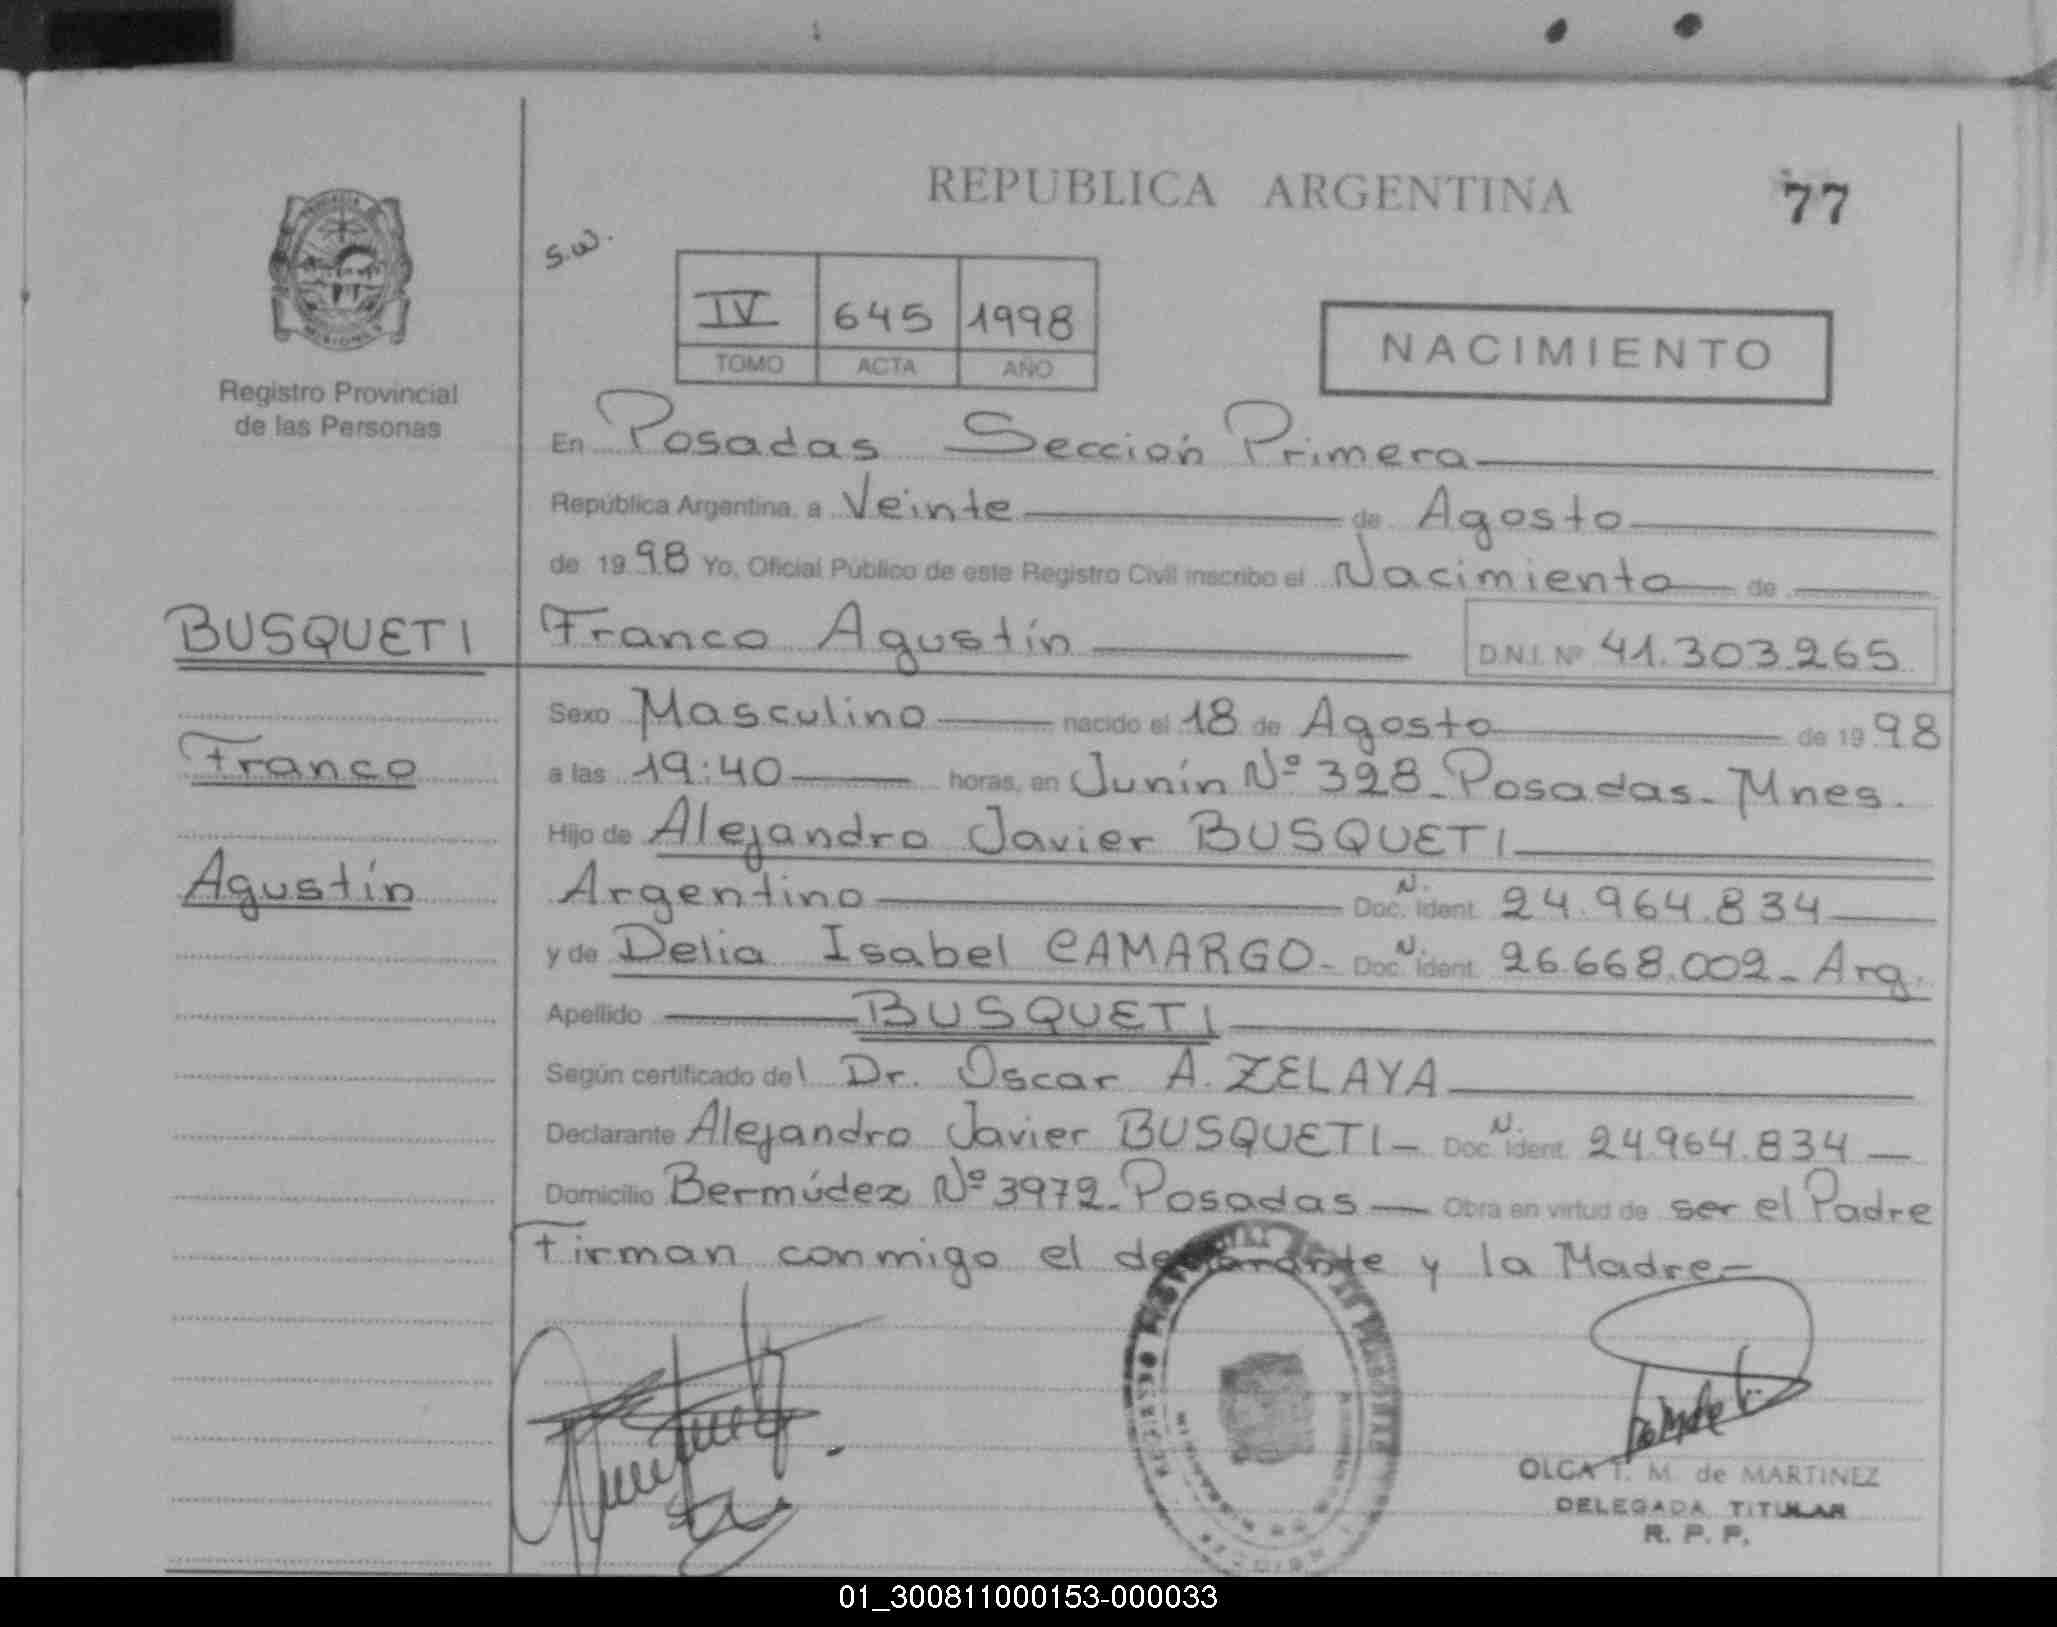 REPUBLICA ARGENTINA
77
s.w.
IV 645 1998
TOMO ACTA AÑO
NACIMIENTO
Registro Provincial
de las Personas
En Posadas Sección Primera
República Argentina, a Veinte de Agosto
de 1998 Yo, Oficial Público de este Registro Civil inscribo el Nacimiento de
BUSQUETI
Franco Agustín D.N.I. Nº 41.303.265
Sexo Masculino nacido el 18 de Agosto de 1998
Franco
a las 19:40 horas, en Junín Nº 328_Posadas_Mnes.
Hijo de Alejandro Javier BUSQUETI
Agustín
Argentino Doc. N. Ident. 24.964.834
y de Delia Isabel CAMARGO_ Doc. N. Ident. 26.668.002_Arg.
Apellido BUSQUETI
Según certificado del Dr. Oscar A. ZELAYA
Declarante Alejandro Javier BUSQUETI_ Doc. N. Ident. 24.964.834
Domicilio Bermúdez Nº 3972_Posadas Obra en virtud de ser el Padre
Firman conmigo el declarante y la Madre_
OLGA T. M. de MARTINEZ
DELEGADA TITULAR
R. P. P.
01_300811000153-000033